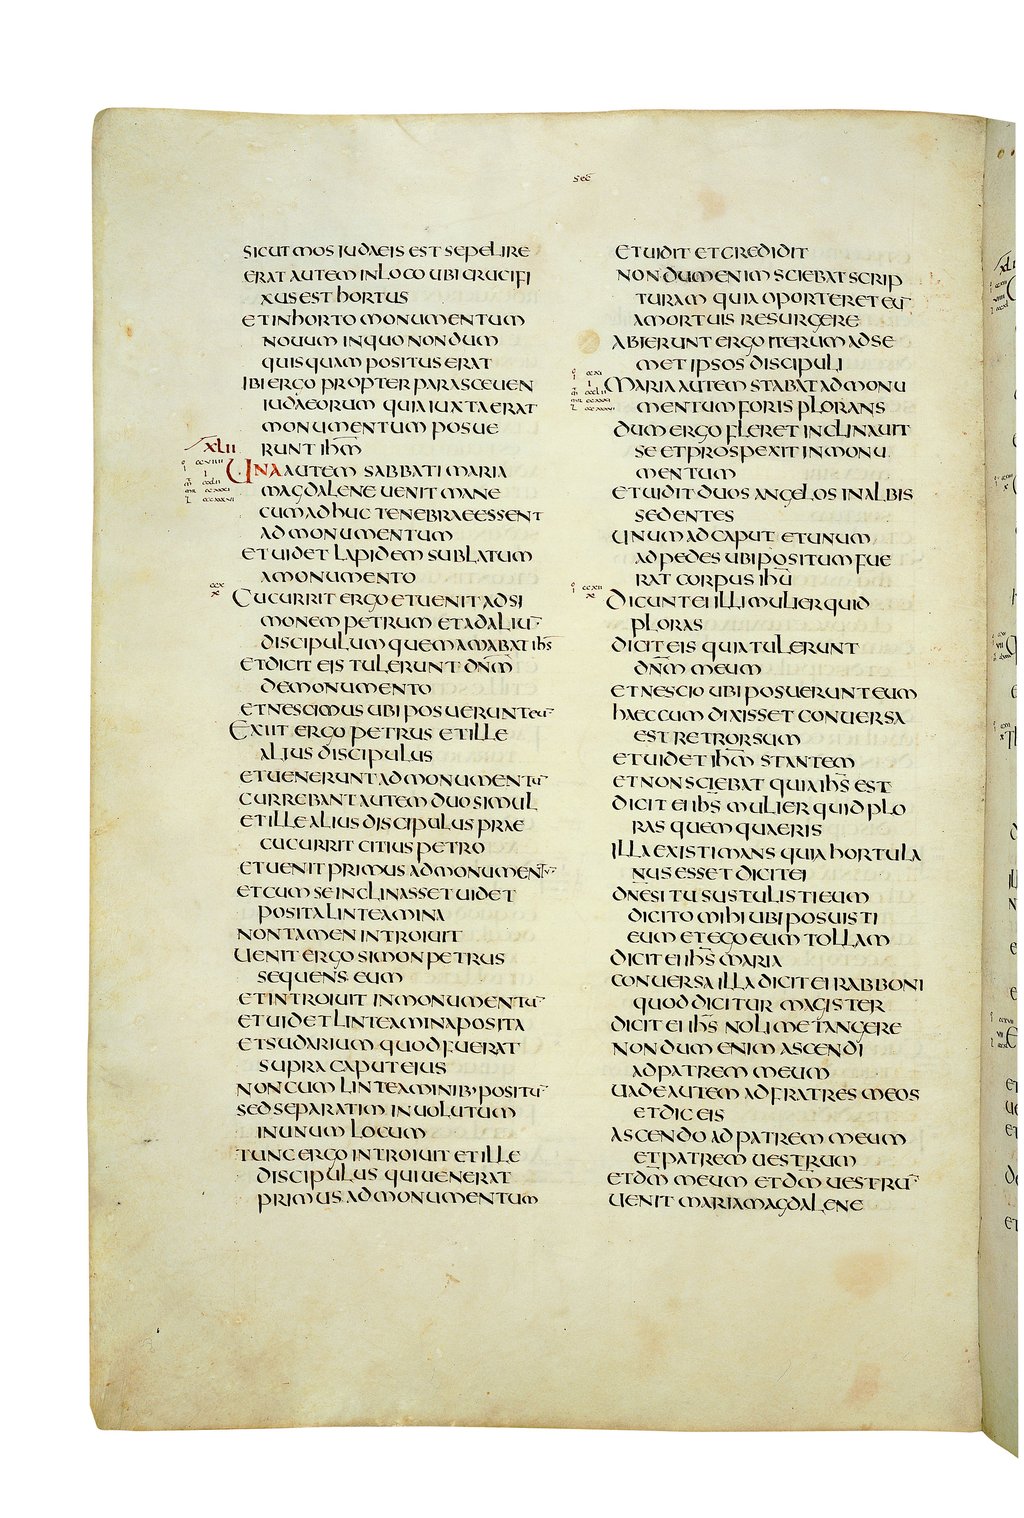 sec
SICUT MOS IUDAEIS EST SEPELIRE
ERAT AUTEM IN LOCO UBI CRUCIFI
XUS EST HORTUS
ET IN HORTO MONUMENTUM
NOUUM IN QUO NONDUM
QUISQUAM POSITUS ERAT
IBI ERGO PROPTER PARASCEUEN
IUDAEORUM QUIA IUXTA ERAT
MONUMENTUM POSUE
RUNT IHM̅
XLII
UNA AUTEM SABBATI MARIA
MAGDALENE UENIT MANE
CUM ADHUC TENEBRAE ESSENT
AD MONUMENTUM
ET UIDET LAPIDEM SUBLATUM
A MONUMENTO
CUCURRIT ERGO ET UENIT AD SI
MONEM PETRUM ET AD ALIU̅
DISCIPULUM QUEM AMABAT IHS̅
ET DICIT EIS TULERUNT DN̅M̅
DE MONUMENTO
ET NESCIMUS UBI POSUERUNT EU̅
EXIIT ERGO PETRUS ET ILLE
ALIUS DISCIPULUS
ET UENERUNT AD MONUMENTU̅
CURREBANT AUTEM DUO SIMUL
ET ILLE ALIUS DISCIPULUS PRAE
CUCURRIT CITIUS PETRO
ET UENIT PRIMUS AD MONUMENTU̅
ET CUM SE INCLINASSET UIDET
POSITA LINTEAMINA
NON TAMEN INTROIUIT
UENIT ERGO SIMON PETRUS
SEQUENS EUM
ET INTROIUIT IN MONUMENTU̅
ET UIDET LINTEAMINA POSITA
ET SUDARIUM QUOD FUERAT
SUPRA CAPUT EIUS
NON CUM LINTEAMINIB· POSITU̅
SED SEPARATIM INUOLUTUM
IN UNUM LOCUM
TUNC ERGO INTROIUIT ET ILLE
DISCIPULUS QUI UENERAT
PRIMUS AD MONUMENTUM
ET UIDIT ET CREDIDIT
NONDUM ENIM SCIEBAT SCRIP
TURAM QUIA OPORTERET EU̅
A MORTUIS RESURGERE
ABIERUNT ERGO ITERUM AD SE
MET IPSOS DISCIPULI
MARIA AUTEM STABAT AD MONU
MENTUM FORIS PLORANS
DUM ERGO FLERET INCLINAUIT
SE ET PROSPEXIT IN MONU
MENTUM
ET UIDIT DUOS ANGELOS IN ALBIS
SEDENTES
UNUM AD CAPUT ET UNUM
AD PEDES UBI POSITUM FUE
RAT CORPUS IHU̅
DICUNT EI ILLI MULIER QUID
PLORAS
DICIT EIS QUIA TULERUNT
DN̅M̅ MEUM
ET NESCIO UBI POSUERUNT EUM
HAEC CUM DIXISSET CONUERSA
EST RETRORSUM
ET UIDET IHM̅ STANTEM
ET NON SCIEBAT QUIA IHS̅ EST
DICIT EI IHS̅ MULIER QUID PLO
RAS QUEM QUAERIS
ILLA EXISTIMANS QUIA HORTULA
NUS ESSET DICIT EI
DN̅E SI TU SUSTULISTI EUM
DICITO MIHI UBI POSUISTI
EUM ET EGO EUM TOLLAM
DICIT EI IHS̅ MARIA
CONUERSA ILLA DICIT EI RABBONI
QUOD DICITUR MAGISTER
DICIT EI IHS̅ NOLI ME TANGERE
NONDUM ENIM ASCENDI
AD PATREM MEUM
UADE AUTEM AD FRATRES MEOS
ET DIC EIS
ASCENDO AD PATREM MEUM
ET PATREM UESTRUM
ET DM̅ MEUM ET DM̅ UESTRU̅
UENIT MARIA MAGDALENE